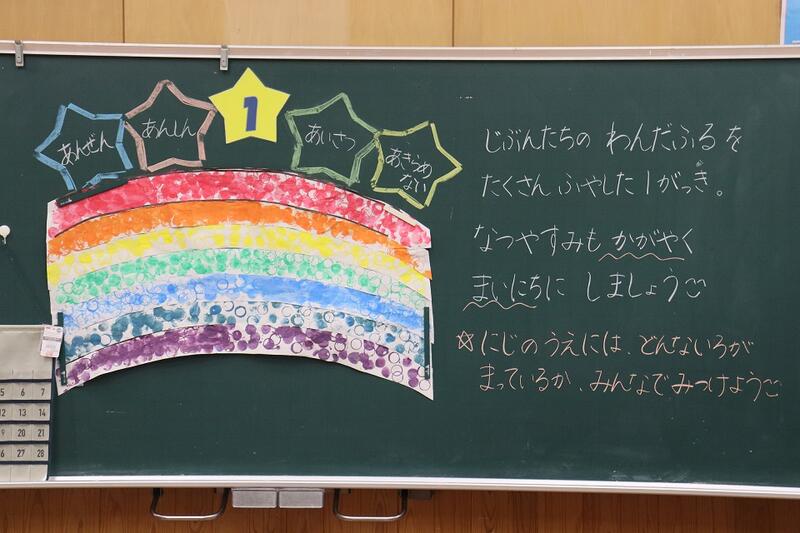 あんぜん
あんしん
1
あいさつ
あきらめ
ない
じぶんたちの わんだふるを
たくさん ふやした 1がっき。
なつやすみも かがやく
まいにちに しましょう
☆にじのうえには、どんないろが
まっているか、みんなでみつけよう
5 6 7
12 13 14
19 20 21
26 27 28